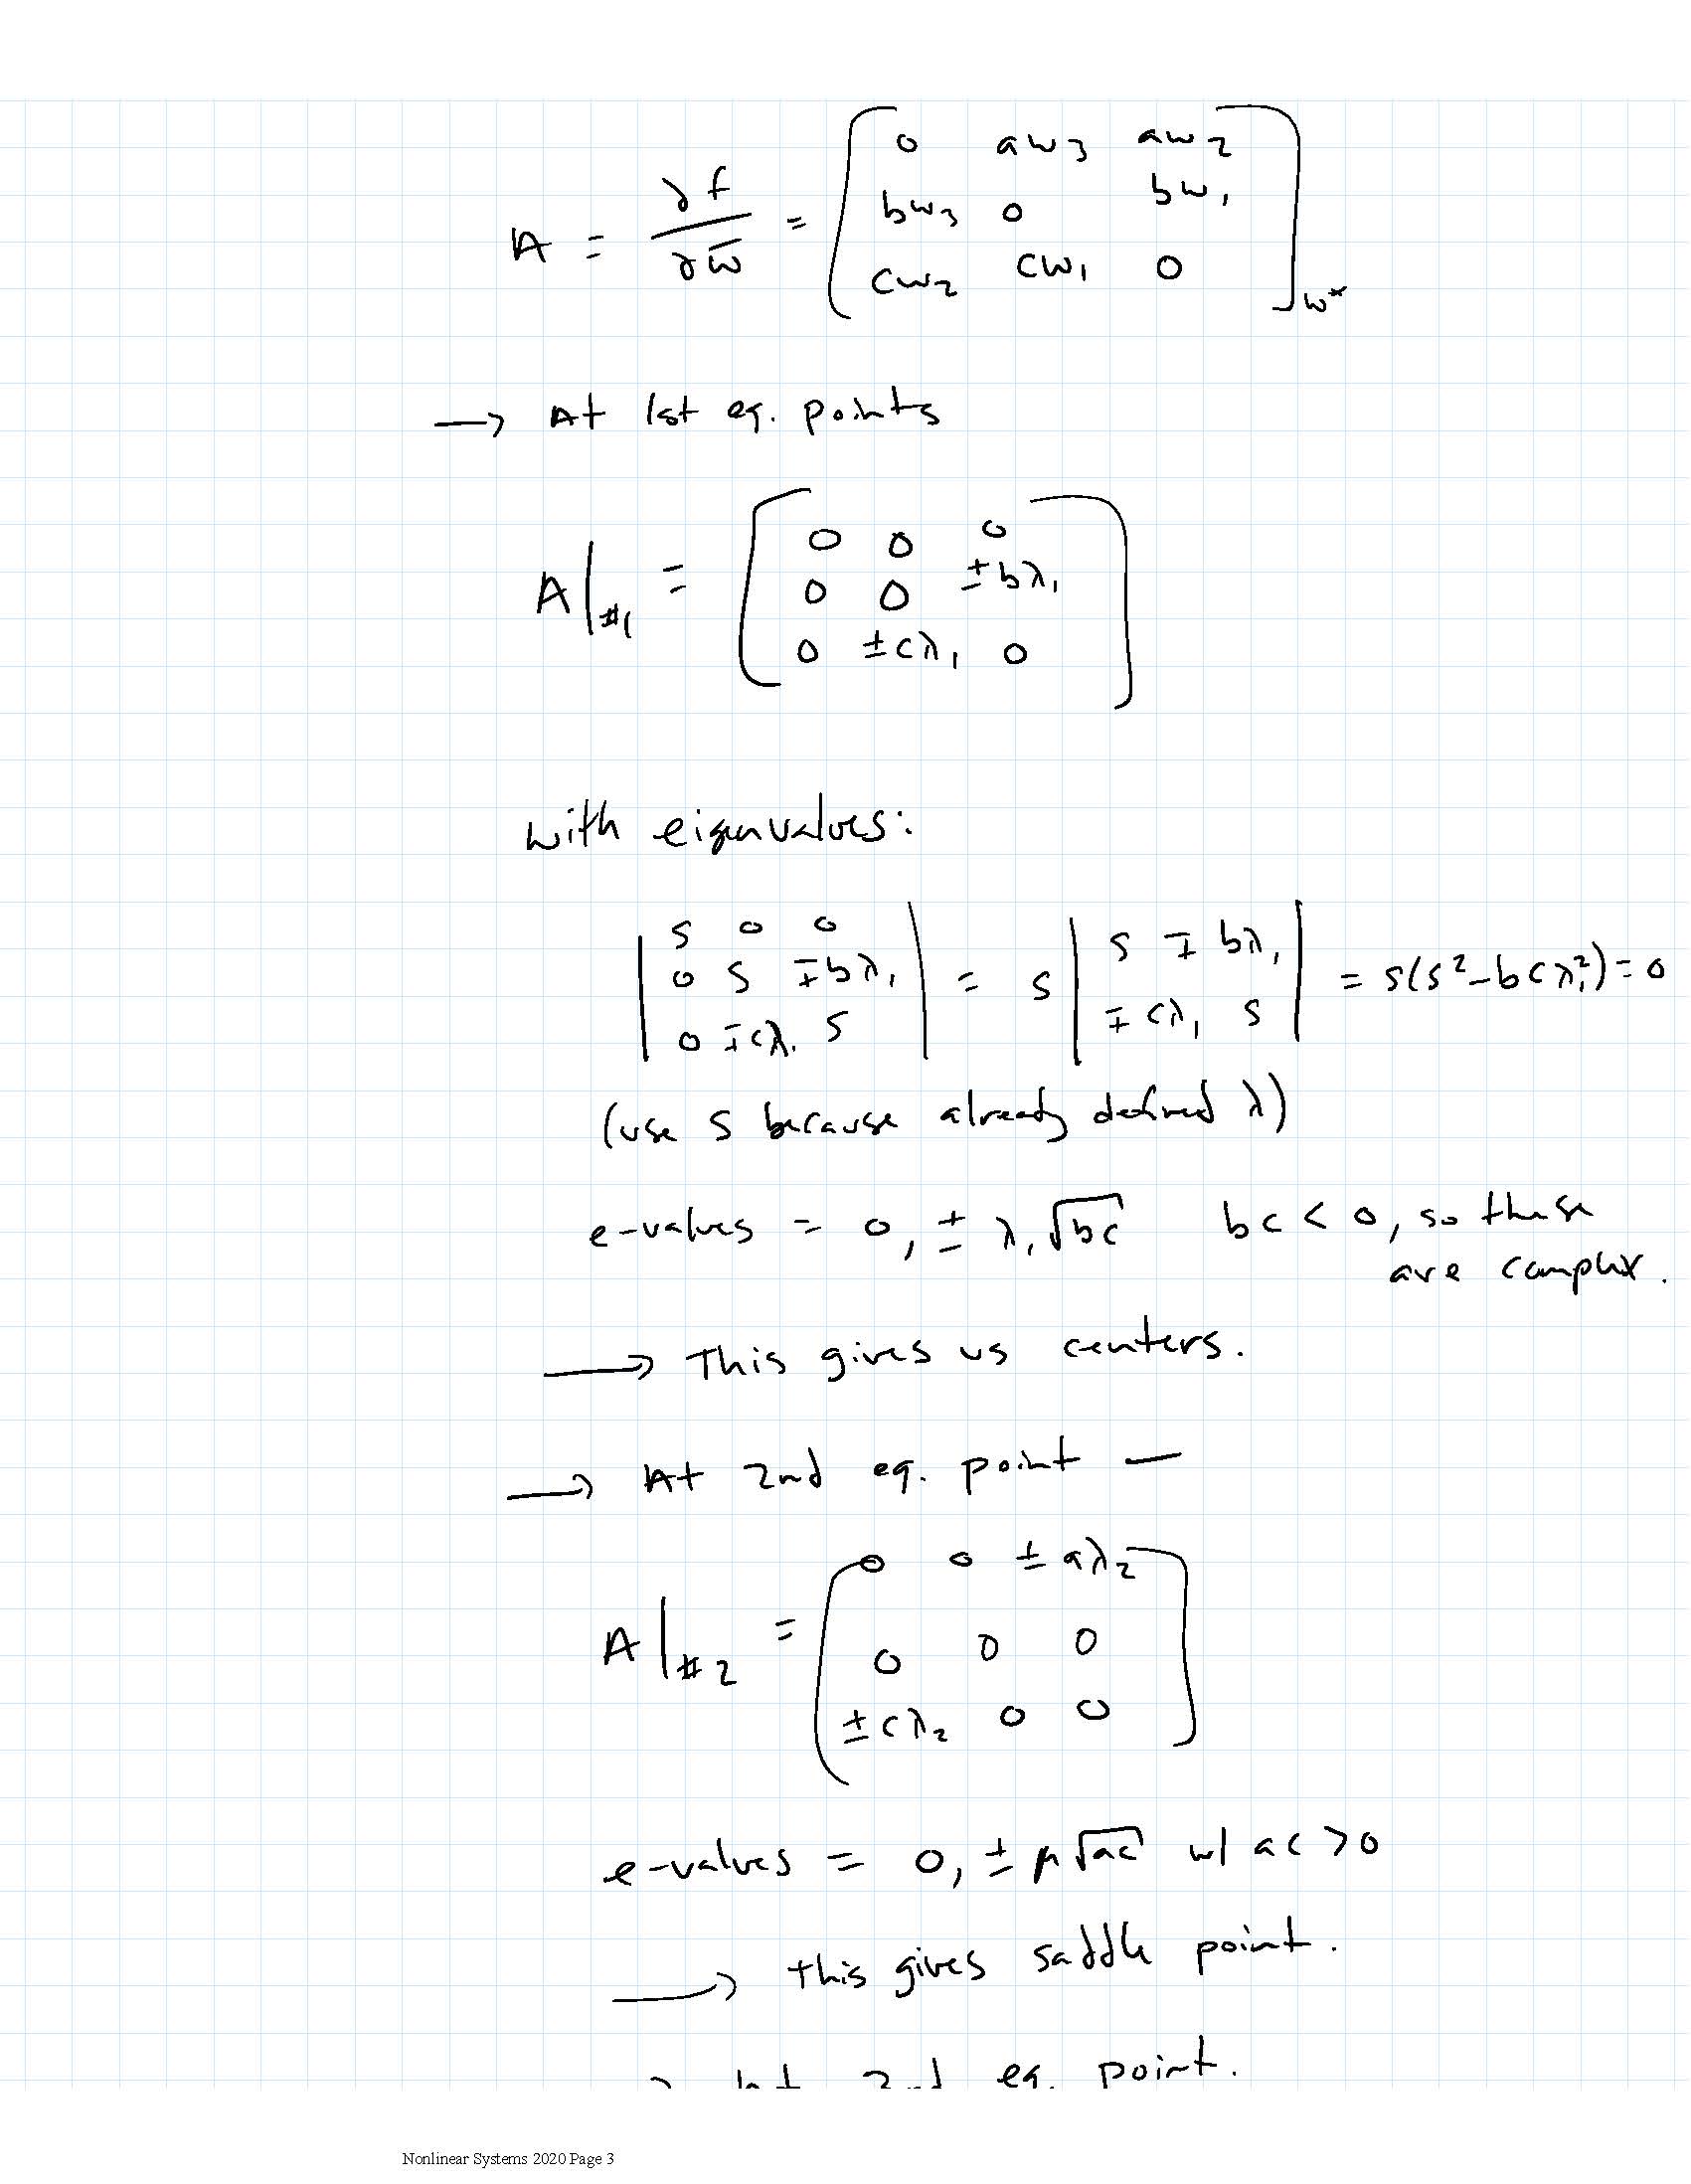 A = ∂f/∂w̄ = [0 aw₃ aw₂
bw₃ 0 bw₁
cw₂ cw₁ 0]w*
→ At 1st eq. points
A|#1 = [0 0 0
0 0 ±bλ₁
0 ±cλ₁ 0]
with eigenvalues:
|s 0 0
0 s ∓bλ₁
0 ∓cλ₁ s| = s |s ∓bλ₁
∓cλ₁ s| = s(s²-bcλ₁²)=0
(use s because already defined λ)
e-values = 0, ± λ₁√bc bc < 0, so these
are complex.
→ This gives us centers.
→ At 2nd eq. point —
A|#2 = [0 0 ±aλ₂
0 0 0
±cλ₂ 0 0]
e-values = 0, ± μ√ac w/ ac > 0
→ this gives saddle point.
eq. point.
Nonlinear Systems 2020 Page 3